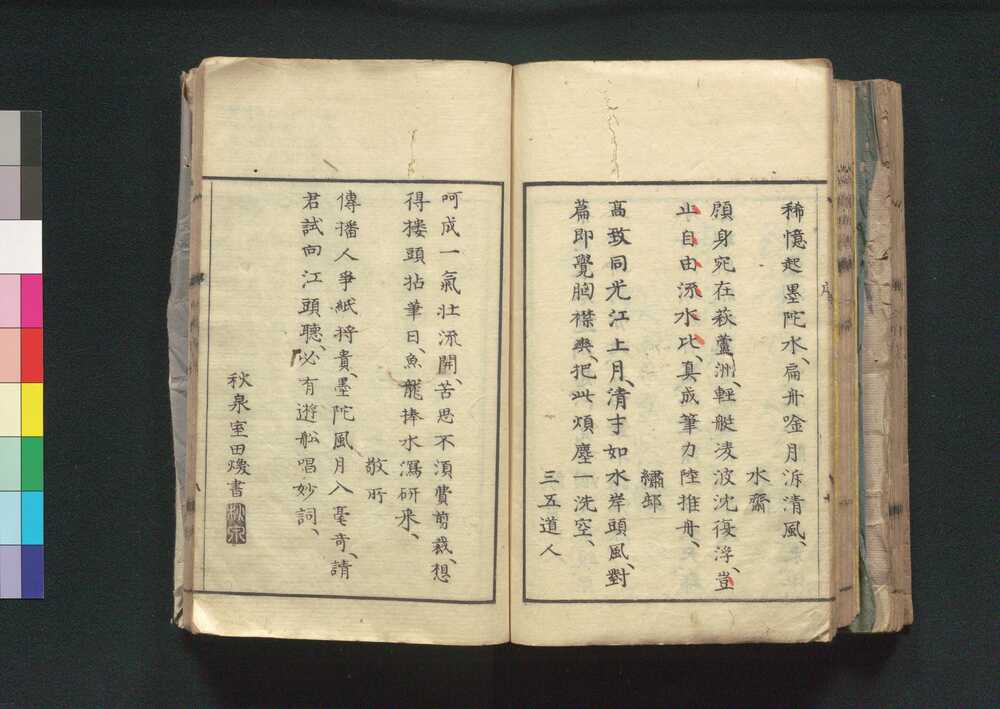 稀憶起墨陀水、扁舟唫月泝清風、
水齋
顧身宛在萩蘆洲、輕艇凌波沈復浮、豈
止自由流水比、真成筆力陸推舟、
繡邨
高致同光江上月、清才如水岸頭風、對
篇即覺胸襟爽、把此煩塵一洗空、
三五道人
呵成一氣壮流開、苦思不須費剪裁、想
得接頭拈筆日、魚龍捧水瀉研来、
敬所
傳播人爭紙将貴、墨陀風月入毫奇、請
君試向江頭聽、必有遊舩唱妙詞、
秋泉室田煥書
秋泉